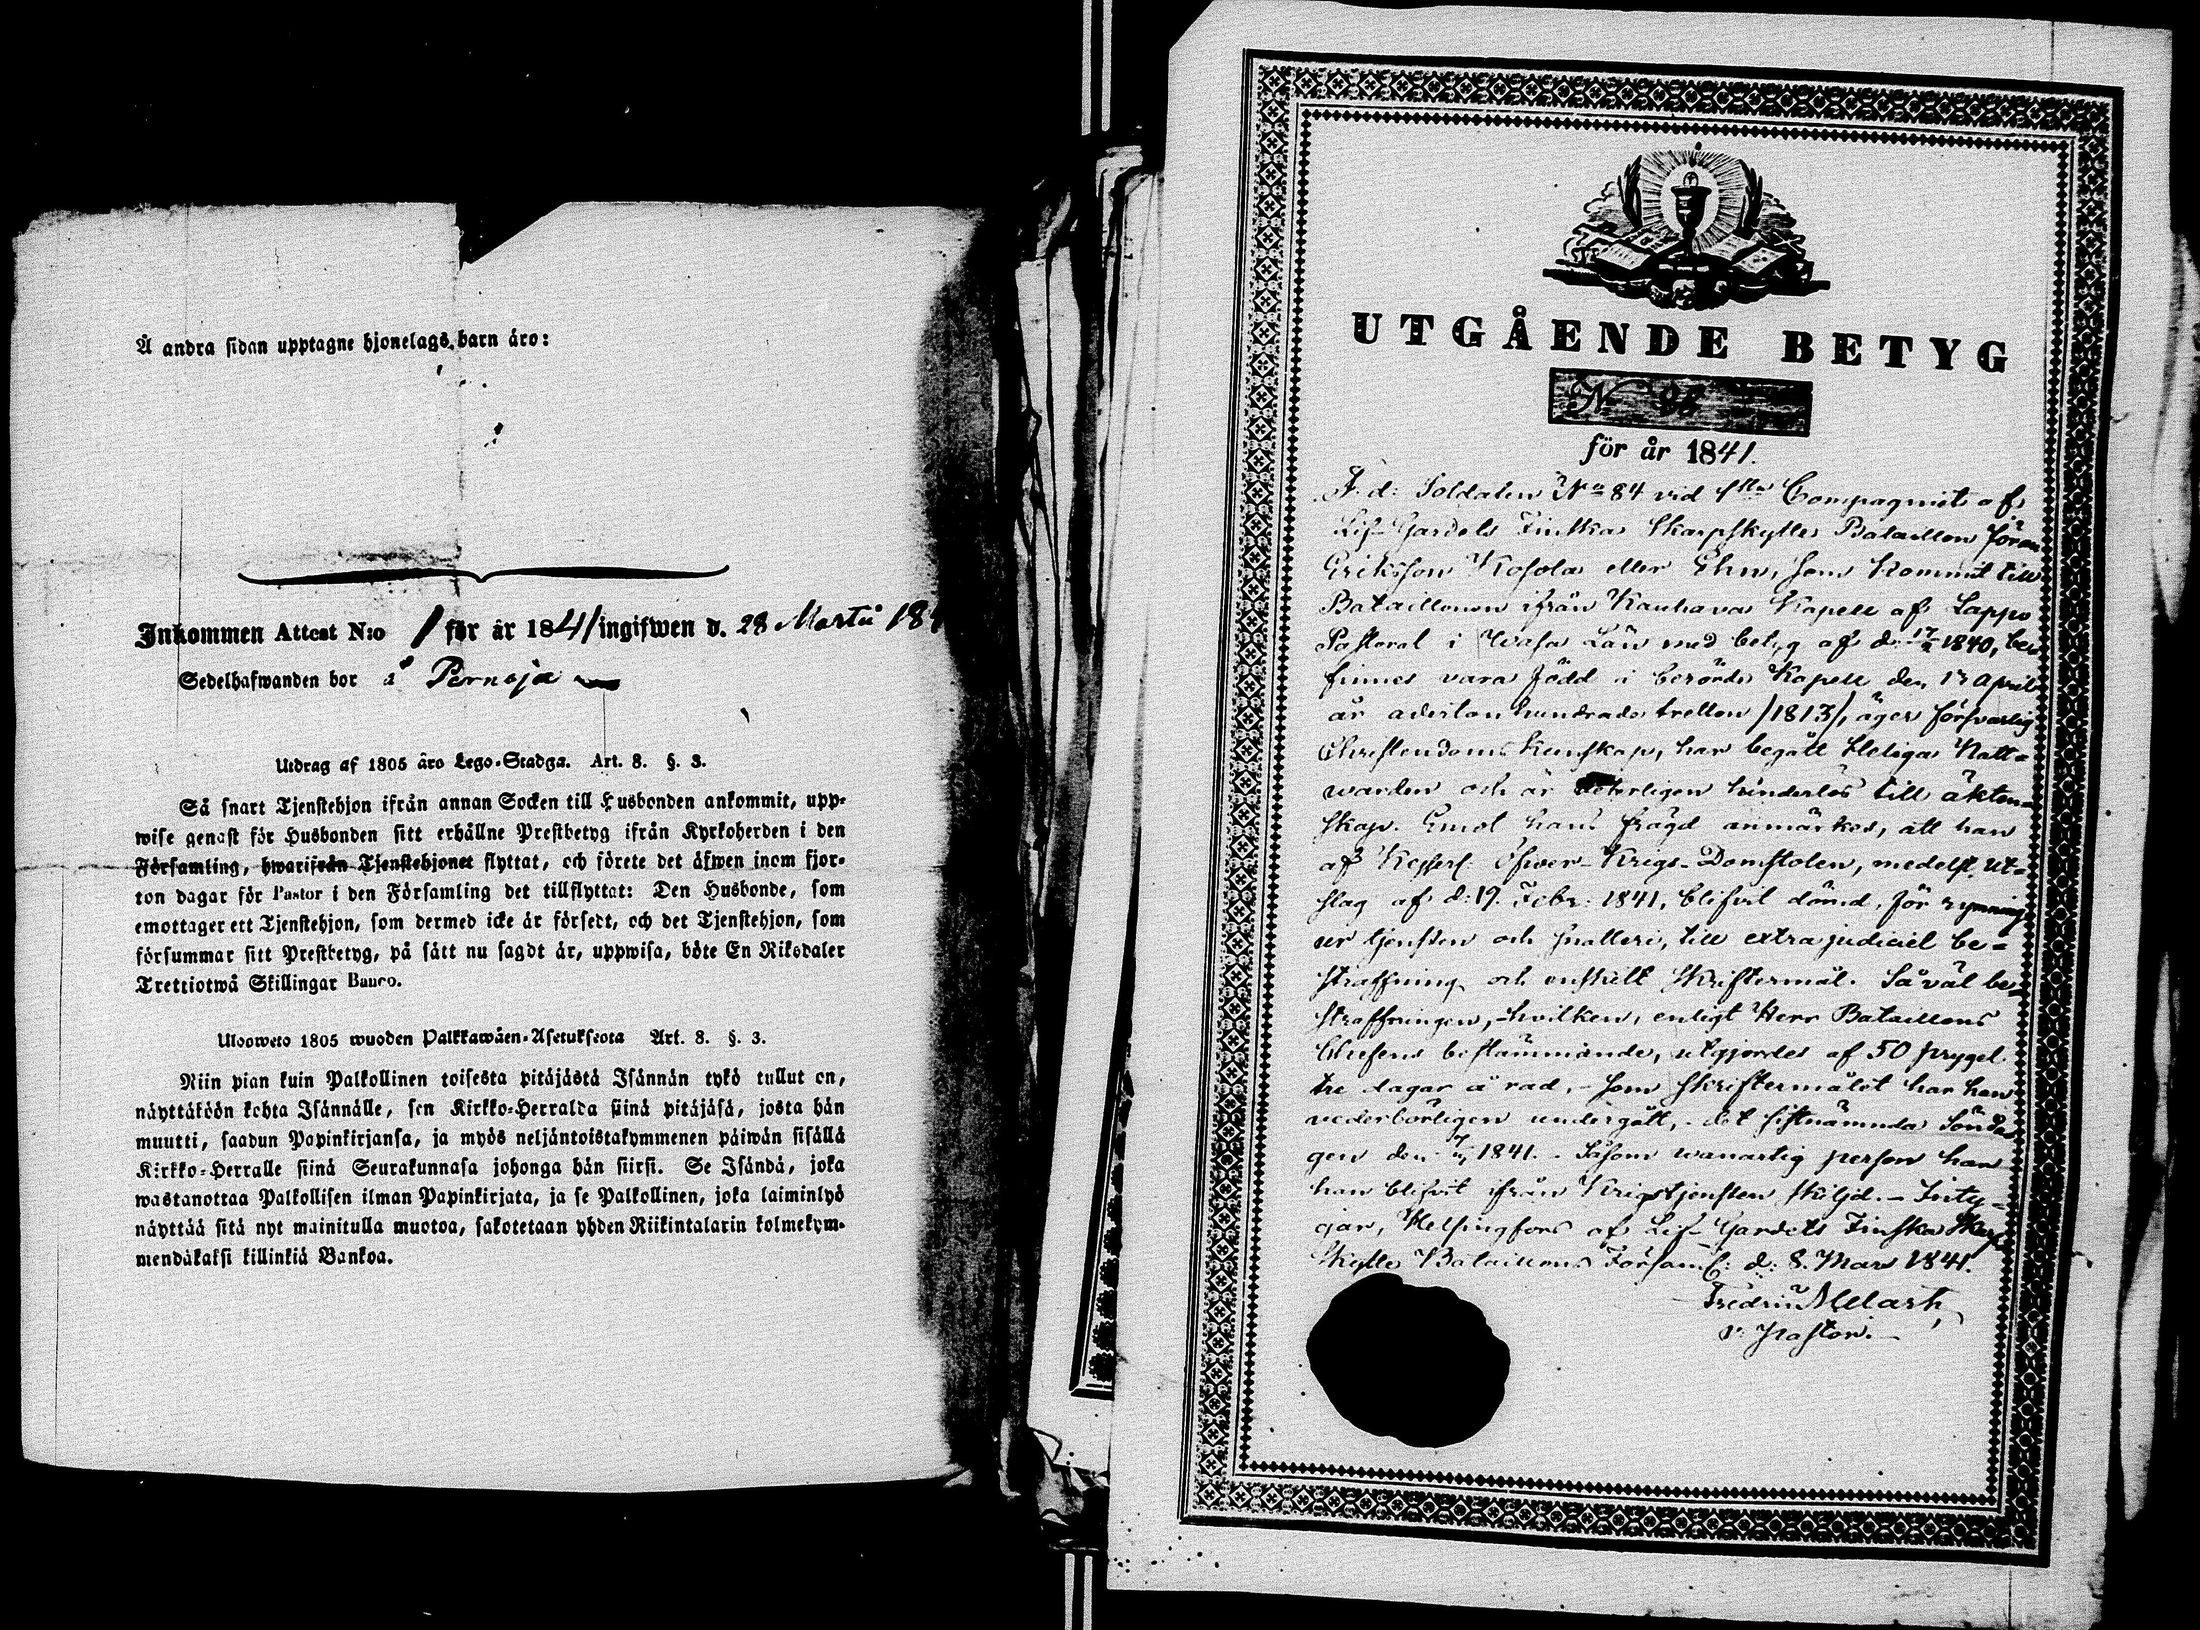 Å andra sidan upptagne hjonelags barn äro:
Inkommen Attest N:o 1 för år 1841 ingifwen d. 28 Martii 184
Sedelhafwanden bor å Pernaja
Utdrag af 1805 års Lego-Stadga. Art. 8. §. 3.
Så snart Tjenstehjon ifrån annan Socken till Husbonden ankommit, upp-
wise genast för Husbonden sitt erhållne Prestbetyg ifrån Kyrkoherden i den
Församling, hwarifrån Tjenstehjonet flyttat, och förete det äfwen inom fjor-
ton dagar för Pastor i den Församling det tillflyttat: Den Husbonde, som
emottager ett Tjenstehjon, som dermed icke är försedt, och det Tjenstehjon, som
försummar sitt Prestbetyg, på sätt nu sagdt är, uppwisa, böte En Riksdaler
Trettiotwå Skillingar Banco.
Ulosweto 1805 wuoden Palkkawäen-Asetuksesta Art. 8. §. 3.
Niin pian kuin Palkollinen toisesta pitäjästä Isännän tykö tullut on,
näyttäköön kohta Isännälle, sen Kirkko-Herralda siinä pitäjäsä, josta hän
muutti, saadun Papinkirjansa, ja myös neljäntoistakymmenen päiwän sisällä
Kirkko-Herralle siinä Seurakunnasa johonga hän siirsi. Se Isändä, joka
wastanottaa Palkollisen ilman Papinkirjata, ja se Palkollinen, joka laiminlyö
näyttää sitä nyt mainitulla muotoa, sakotetaan yhden Riikintalarin kolmekym-
mendäkaksi killinkiä Bankoa.
UTGÅENDE BETYG
N
för år 1841.
F. d: Soldaten No 84 vid Compagniet af
Lif-Gardets Finska Skarpskytte Bataillon Jöran
Eriksson Kosola eller Ehn, som kommit till
Bataillonen ifrån Kauhava Kapell af Lappo
Pastorat i Wasa Län med betyg af d. 1840, be-
finnes vara född i berörde Kapell den 13 April
år adertonhundrade tretton /1813/, äger försvarlig
Christendoms kunskap, har begått Heliga Natt-
warden och är hinderlös till äkten-
skap. Emot hans frägd anmärkes, att han
af Kejserl. Öfwer-Krigs-Domstolen, medelst ut-
slag af d: 19 Febr: 1841, blifvit dömd, för rymning
ur tjensten och snatteri, till extrajudiciel be-
straffning och enskilt Skriftermål. Så väl be-
straffningen, hvilken, enligt Herr Bataillons
Chefens bestämmande, utgjordes af 50 prygel
tre dagar å rad, som Skriftermålet har han
vederbörligen undergått, det sistnämnda Sönda-
gen den 1841. Såsom wanartig person har
han blifvit ifrån Krigstjensten skiljd. Inty-
gar, Helsingfors af Lif-Gardets Finska Skarp-
Skytte Bataillons Förssaml: d: 8 Mars 1841.
Fredric
v. Pastor.